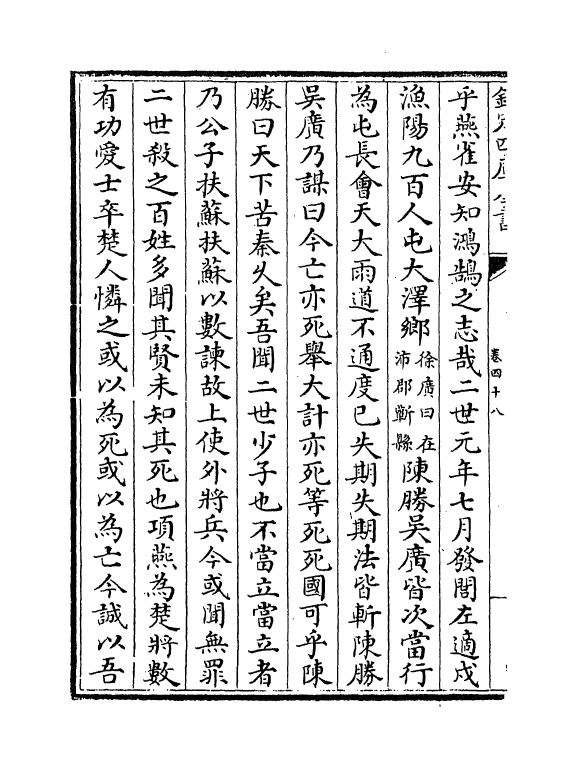 欽定四庫全書
卷四十八
乎燕雀安知鴻鵠之志哉二世元年七月發閭左適戍
漁陽九百人屯大澤鄉徐廣曰在沛郡蘄縣陳勝吳廣皆次當行
為屯長會天大雨道不通度已失期失期法皆斬陳勝
吳廣乃謀曰今亡亦死舉大計亦死等死死國可乎陳
勝曰天下苦秦乆矣吾聞二世少子也不當立當立者
乃公子扶蘇扶蘇以數諫故上使外將兵今或聞無罪
二世殺之百姓多聞其賢未知其死也項燕為楚將數
有功愛士卒楚人憐之或以為死或以為亡今誠以吾